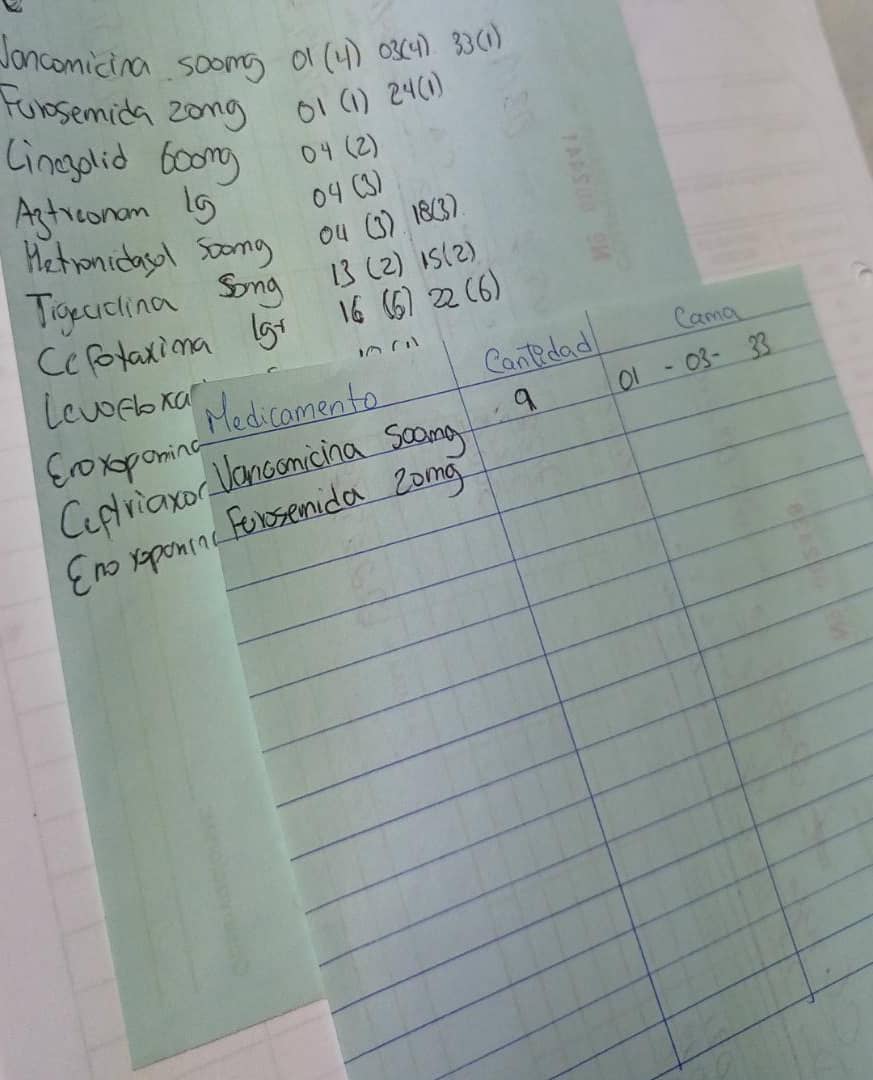 Vancomicina 500mg 01 (4) 03(4) 33(1)
Furosemida 20mg 01 (1) 24(1)
Linezolid 600mg 04 (2)
Aztreonam 1g 04 (3)
Metronidazol 500mg 04 (3) 18(3)
Tigeciclina 50mg 13 (2) 15(2)
Cefotaxima 1gr 16 (6) 22 (6)
Levofloxa
Enoxaparina
Ceftriaxo
Enoxaparin
Medicamento Cantidad Cama
Vancomicina 500mg 9 01 - 03 - 33
Furosemida 20mg